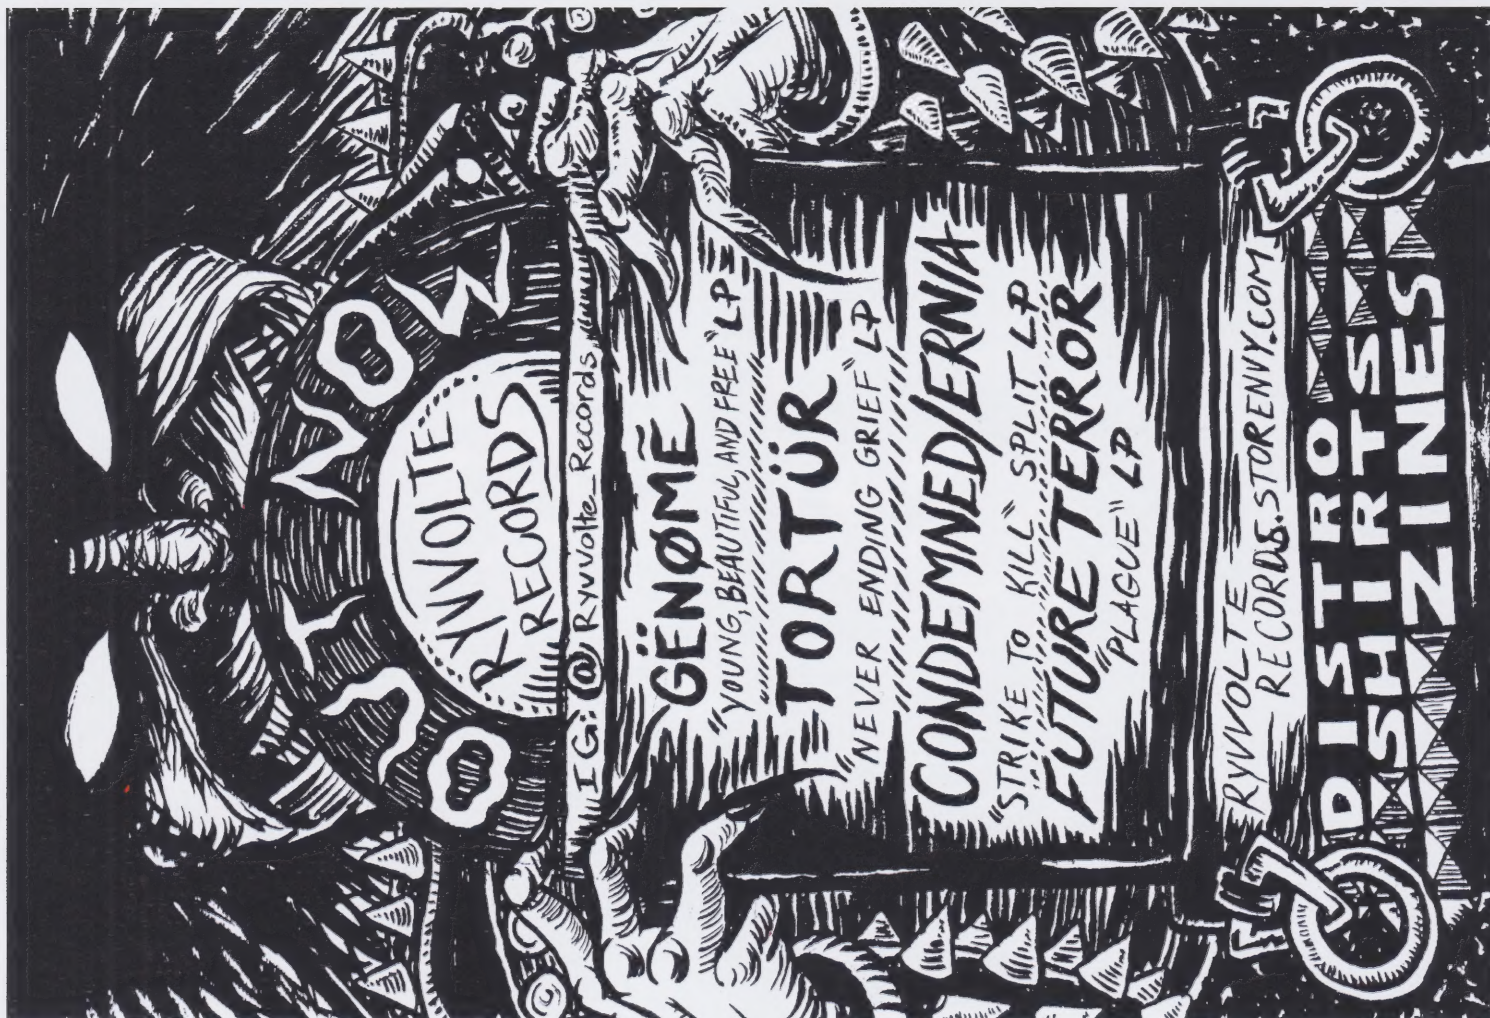 OUT NOW
RYVVOLTE
RECORDS
IG: @Ryvvolte_Records
GËNØME
"YOUNG, BEAUTIFUL, AND FREE" LP
TORTÜR
"NEVER ENDING GRIEF" LP
CONDEMNED/ERNIA
"STRIKE TO KILL" SPLIT LP
FUTURE TERROR
"PLAGUE" LP
RYVVOLTE
RECORDS.STORENVY.COM
DISTRO
SHIRTS
ZINES